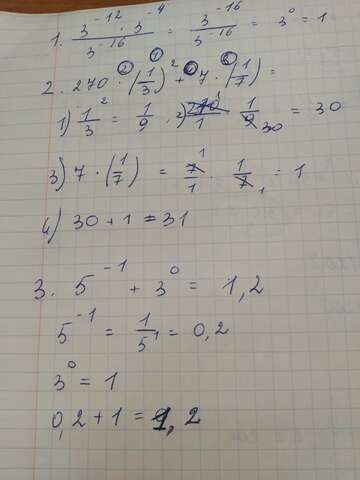 1. 3^-12 · 3^-4 / 3^-16 = 3^-16 / 3^-16 = 3^0 = 1
2. 270 · (1/3)^2 + 7 · (1/7) =
1) 1/3^2 = 1/9 2) 270/1 · 1/9 = 30
3) 7 · (1/7) = 7/1 · 1/7 = 1
4) 30 + 1 = 31
3. 5^-1 + 3^0 = 1,2
5^-1 = 1/5^1 = 0,2
3^0 = 1
0,2 + 1 = 1,2